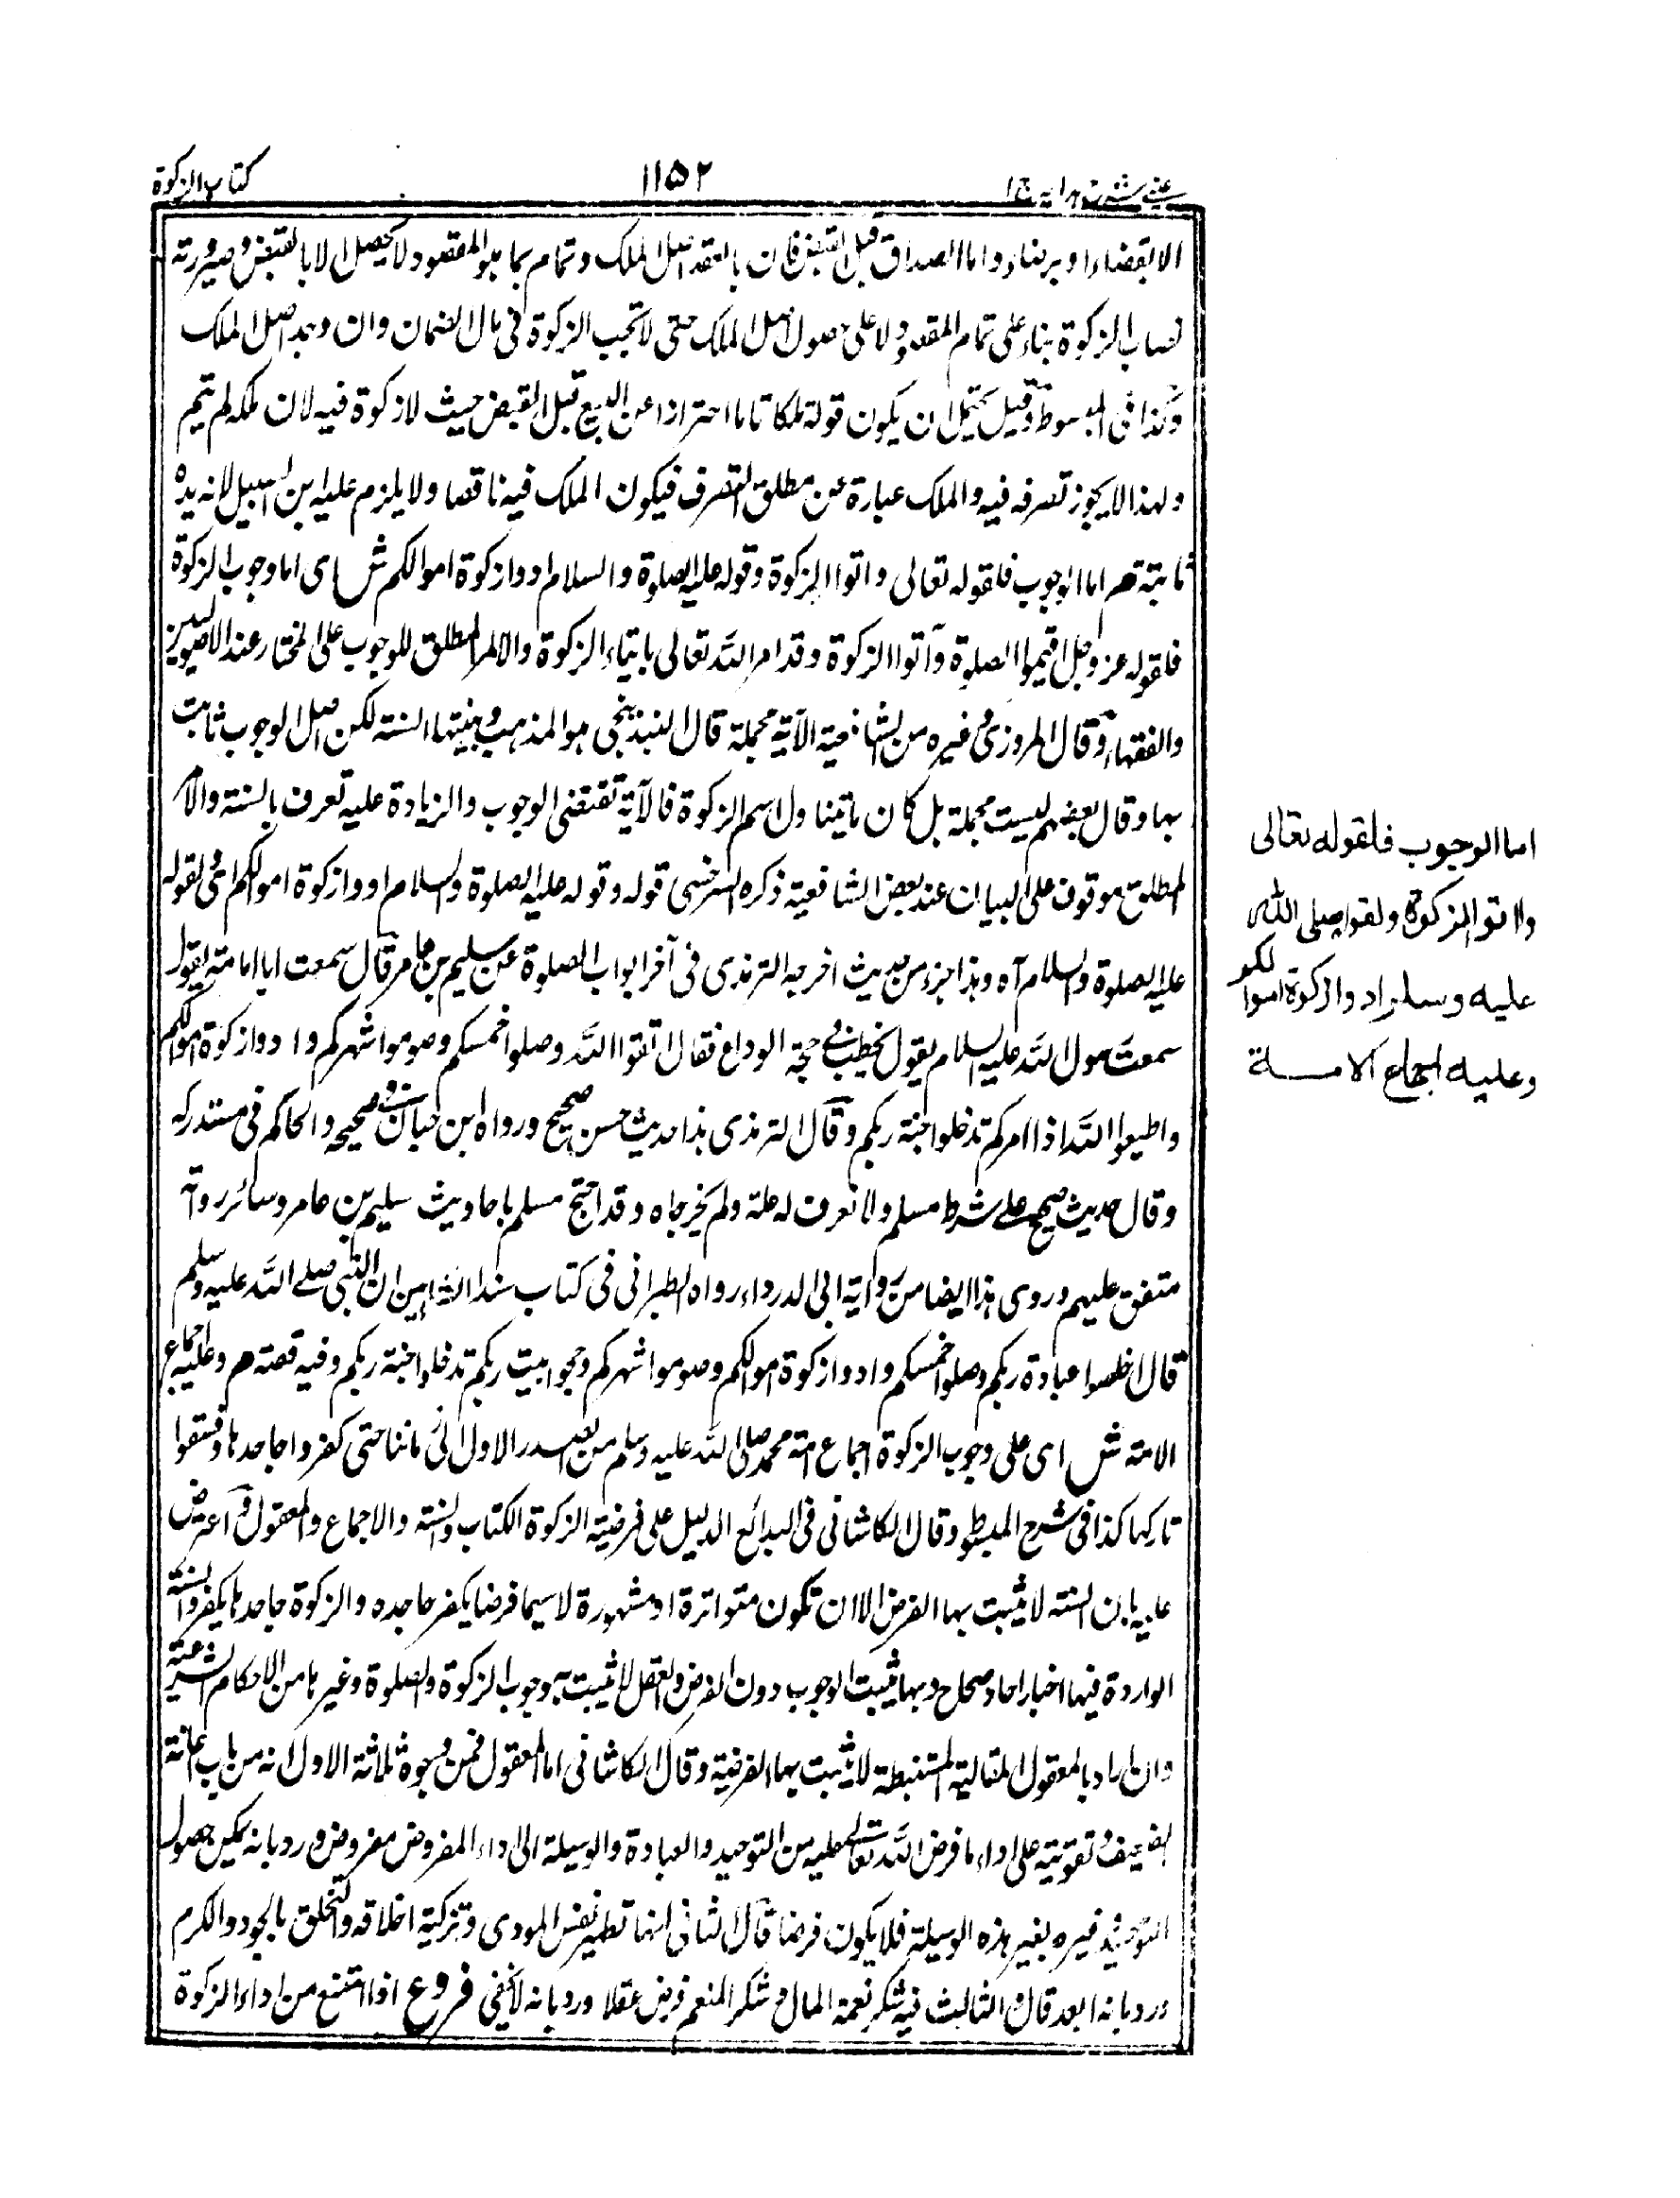 عيني شرح هدايه ج ا
١١٥٢
كتاب الزكوة
الا بقضاء او برضاء واما الصداق قبل القبض فان بالعقد اصل الملك وتمام بما هو المقصود لا يحصل الا بالقبض وصيرورته
نصاب الزكوة بناء على تمام المقصود لا على حصول اصل الملك حتى لا تجب الزكوة في مال الضمان وان وجد اصل الملك
وكذا في المبسوط وقيل يحتمل ان يكون قوله ملكا تاما احترازا عن المبيع قبل القبض حيث لا زكوة فيه لان ملكه لم يتم
ولهذا لا يجوز تصرفه فيه والملك عبارة عن مطلق التصرف فيكون الملك فيه ناقصا ولا يلزم عليه ابن السبيل لانه يده
ثابتة هم اما الوجوب فلقوله تعالى واتوا الزكوة وقوله عليه الصلوة والسلام ادوا زكوة اموالكم ش اى اما وجوب الزكوة
فلقوله عز وجل اقيموا الصلوة وآتوا الزكوة وقد امر الله تعالى بايتاء الزكوة والامر المطلق للوجوب على المختار عند الاصوليين
والفقهاء وقال المروزى وغيره من الشافعية الآية مجملة قال البندنيجى هو المذهب وبينتها السنة لكن اصل الوجوب ثابت
بها وقال بعضهم ليست مجملة بل كان ما يتناول اسم الزكوة فالآية تقتضى الوجوب والزيادة عليه تعرف بالسنة والامر
المطلق موقوف على البيان عند بعض الشافعية ذكره السرخسى قوله وقوله عليه الصلوة والسلام ادوا زكوة اموالكم اى لقوله
عليه الصلوة والسلام آه وهذا جزء من حديث اخرجه الترمذى فى آخر ابواب الصلوة عن سليم بن عامر قال سمعت ابا امامة يقول
سمعت رسول الله عليه السلام يقول يخطب فى حجة الوداع فقال اتقوا الله وصلوا خمسكم وصوموا شهركم وادوا زكوة اموالكم
واطيعوا الله اذا امركم تدخلوا جنة ربكم وقال الترمذى هذا حديث حسن صحيح ورواه ابن حبان فى صحيحه والحاكم فى مستدركه
وقال حديث صحيح على شرط مسلم ولا نعرف له علة ولم يخرجاه وقد احتج مسلم باحاديث سليم بن عامر وسائر رواته
متفق عليهم وروى هذا ايضا من رواية ابى الدرداء رواه الطبرانى فى كتاب مسند الشاميين ان النبى صلى الله عليه وسلم
قال اخلصوا عبادة ربكم وصلوا خمسكم وادوا زكوة اموالكم وصوموا شهركم وحجوا بيت ربكم تدخلوا جنة ربكم وفيه قصة هم وعليه اجماع
الامة ش اى على وجوب الزكوة اجماع امة محمد صلى الله عليه وسلم من الصدر الاول الى زماننا حتى كفروا جاحدها وفسقوا
تاركها كذا فى شرح المبسوط وقال الكاشانى فى البدائع الدليل على فرضية الزكوة الكتاب والسنة والاجماع والمعقول واعترض
عليه بان السنة لا يثبت بها الفرض الا ان تكون متواترة او مشهورة لا سيما فرضا يكفر جاحده والزكوة جاحدها يكفر والسنة
الواردة فيها اخبار احاد صحاح وبها يثبت الوجوب دون الفرض والعقل لا يثبت به وجوب الزكوة والصلوة وغيرها من الاحكام الشرعية
وان اراد بالمعقول المقالية المستنبطة لا يثبت بها الفرضية وقال الكاشانى اما المعقول فمن وجوه ثلاثة الاول انه من باب اعانة
الضعيف وتقويته على اداء ما فرض الله تعالى عليه من التوحيد والعبادة والوسيلة الى اداء المفروض مفروض ورد بانه يمكن حصول
التوحيد وغيره بغير هذه الوسيلة فلا يكون فرضا قال الثانى انها تطهير نفس المودى وتزكية اخلاقه والتخلق بالجود والكرم
ورد بانه ابعد قال الثالث فيه شكر نعمة المال وشكر المنعم فرض عقلا ورد بانه لا يخفى فروع اذا امتنع من اداء الزكوة
اما الوجوب فلقوله تعالى
واتوا الزكوة ولقوله صلى الله
عليه وسلم ادوا زكوة اموالكم
وعليه اجماع الامة